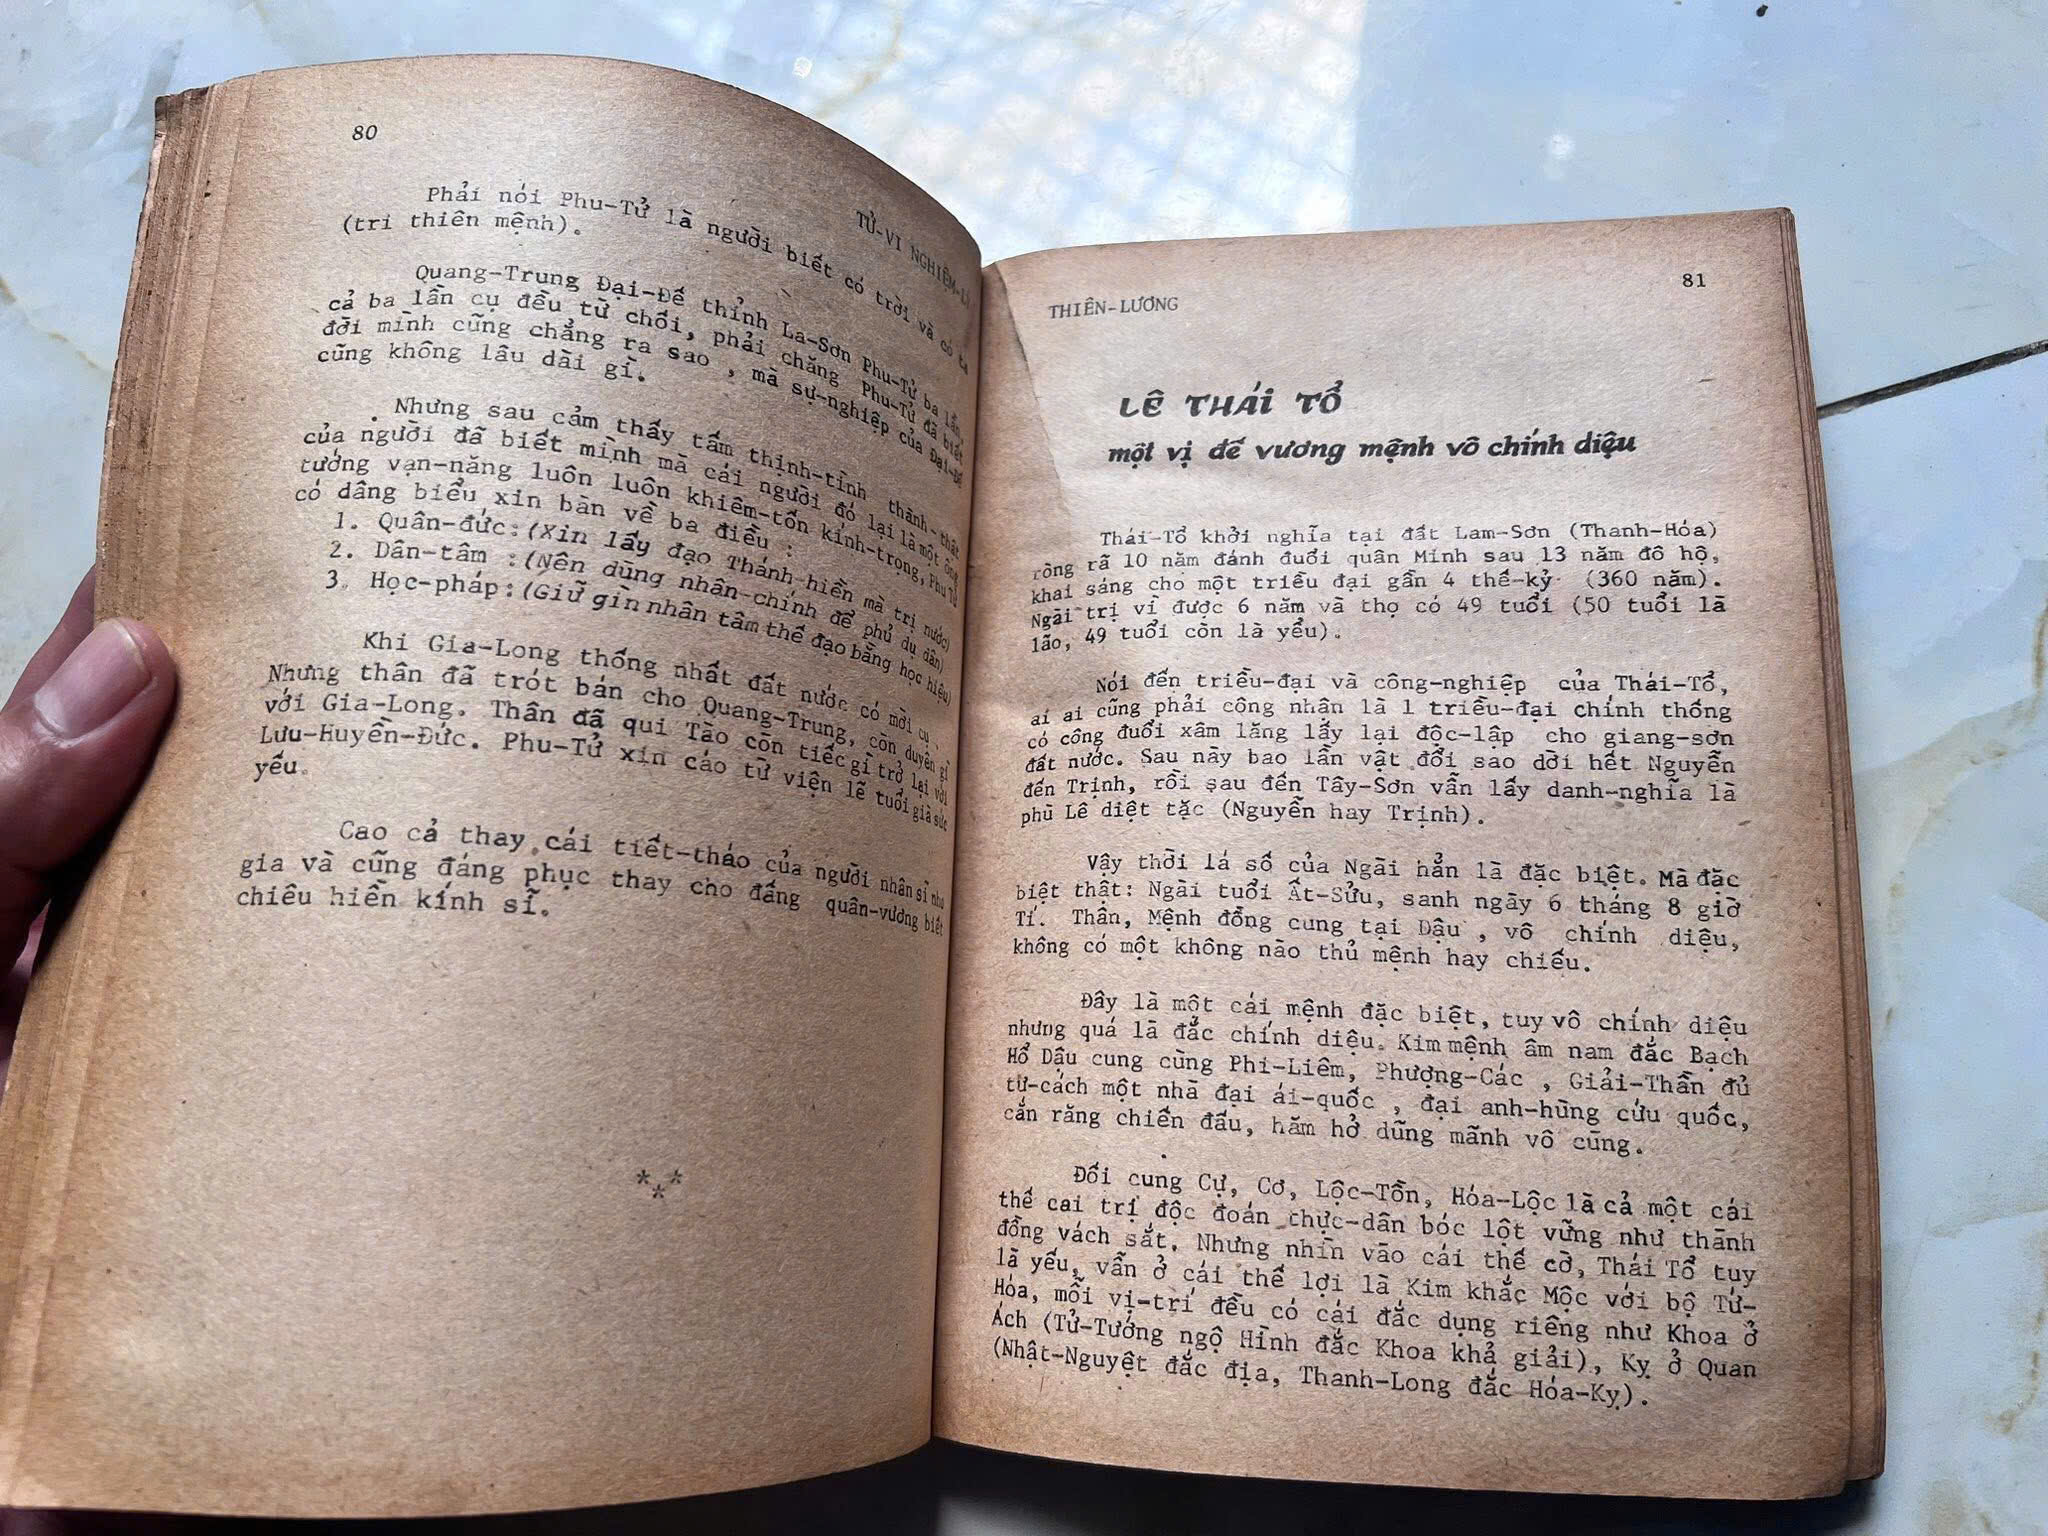 80
TỬ-VI NGHIỆM-L
Phải nói Phu-Tử là người biết có trời và có ta
(tri thiên mệnh).
Quang-Trung Đại-Đế thỉnh La-Sơn Phu-Tử ba lần,
cả ba lần cụ đều từ chối, phải chăng Phu-Tử đã biết
đời mình cũng chẳng ra sao , mà sự-nghiệp của Đại-Đế
cũng không lâu dài gì.
Nhưng sau cảm thấy tấm thịnh-tình thành-thật
của người đã biết mình mà cái người đó lại là một ông
tướng vạn-năng luôn luôn khiêm-tốn kính-trọng, Phu Tử
có dâng biểu xin bàn về ba điều :
1. Quân-đức:(Xin lấy đạo Thánh-hiền mà trị nước)
2. Dân-tâm :(Nên dùng nhân-chính để phủ dụ dân)
3. Học-pháp:(Giữ gìn nhân tâm thế đạo bằng học hiệu)
Khi Gia-Long thống nhất đất nước có mời cụ.
Nhưng thân đã trót bán cho Quang-Trung, còn duyên gì
với Gia-Long. Thân đã qui Tào còn tiếc gì trở lại với
Lưu-Huyền-Đức. Phu-Tử xin cáo từ viện lẽ tuổi già sức
yếu.
Cao cả thay cái tiết-tháo của người nhân sĩ nho
gia và cũng đáng phục thay cho đấng quân-vương biết
chiêu hiền kính sĩ.
***
THIÊN-LƯƠNG
81
LÊ THÁI TỔ
một vị đế vương mệnh vô chính diệu
Thái-Tổ khởi nghĩa tại đất Lam-Sơn (Thanh-Hóa)
ròng rã 10 năm đánh đuổi quân Minh sau 13 năm đô hộ,
khai sáng cho một triều đại gần 4 thế-kỷ (360 năm).
Ngài trị vì được 6 năm và thọ có 49 tuổi (50 tuổi là
lão, 49 tuổi còn là yểu).
Nói đến triều-đại và công-nghiệp của Thái-Tổ,
ai ai cũng phải công nhân là 1 triều-đại chính thống
có công đuổi xâm lăng lấy lại độc-lập cho giang-sơn
đất nước. Sau này bao lần vật đổi sao dời hết Nguyễn
đến Trịnh, rồi sau đến Tây-Sơn vẫn lấy danh-nghĩa là
phù Lê diệt tặc (Nguyễn hay Trịnh).
Vậy thời lá số của Ngài hẳn là đặc biệt. Mà đặc
biệt thật: Ngài tuổi Ất-Sửu, sanh ngày 6 tháng 8 giờ
Tí. Thân, Mệnh đồng cung tại Dậu , vô chính diệu,
không có một không nào thủ mệnh hay chiếu.
Đây là một cái mệnh đặc biệt, tuy vô chính diệu
nhưng quá là đắc chính diệu. Kim mệnh âm nam đắc Bạch
Hổ Dậu cung cùng Phi-Liêm, Phượng-Các , Giải-Thần đủ
tư-cách một nhà đại ái-quốc , đại anh-hùng cứu quốc,
cắn răng chiến đấu, hăm hở dũng mãnh vô cùng.
Đối cung Cự, Cơ, Lộc-Tồn, Hóa-Lộc là cả một cái
thế cai trị độc đoán thực-dân bóc lột vững như thành
đồng vách sắt. Nhưng nhìn vào cái thế cờ, Thái Tổ tuy
là yếu, vẫn ở cái thế lợi là Kim khắc Mộc với bộ Tứ-
Hóa, mỗi vị-trí đều có cái đắc dụng riêng như Khoa ở
Ách (Tử-Tướng ngộ Hình đắc Khoa khả giải), Kỵ ở Quan
(Nhật-Nguyệt đắc địa, Thanh-Long đắc Hóa-Kỵ).